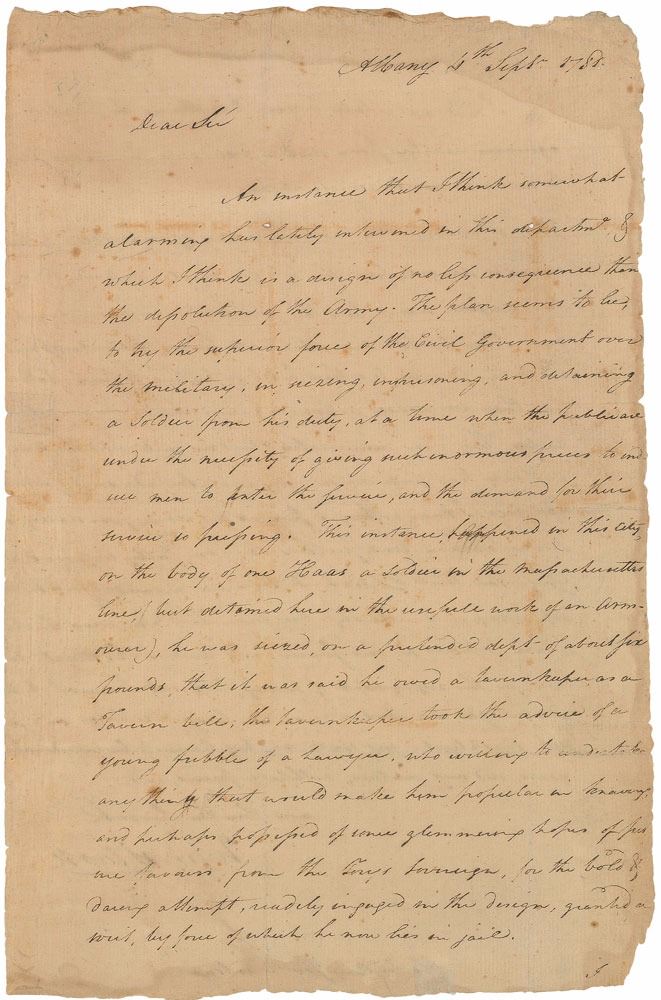 Albany 4th Sepbr 178
Dear Sir
An instance that I think somewhat
alarming has lately intervened in this departmt &
which I think is a design of no less consequence than
the dissolution of the Army. The plan seems to be,
to try the superior force of the Civil Government over
the military, in siezing, imprisoning, and detaining
a Soldier from his duty, at a time when the public are
under the necessity of giving such inormous prices to ind
uce men to enter the service, and the demand for their
service so pressing. This instance, happened in this city,
on the body of one Haas a Soldier in the Massachusetts
line, (but detained here in the usefull work of an Arm-
ourer), he was siezed, on a pretended dept of about six
pounds, that it was said he owed a tavernkeeper as a
Tavern bill; the tavernkeeper took the advice of a
young fribble of a Lawyer, who willing to undertake
any thing that would make him popular in knavery,
and perhaps possessed of some glimmering hopes of
favours from the Tory Sovereign, for the bold &
daring attempt, readily ingaged in the design, granted a
writ, by force of which he now lies in jail.
I